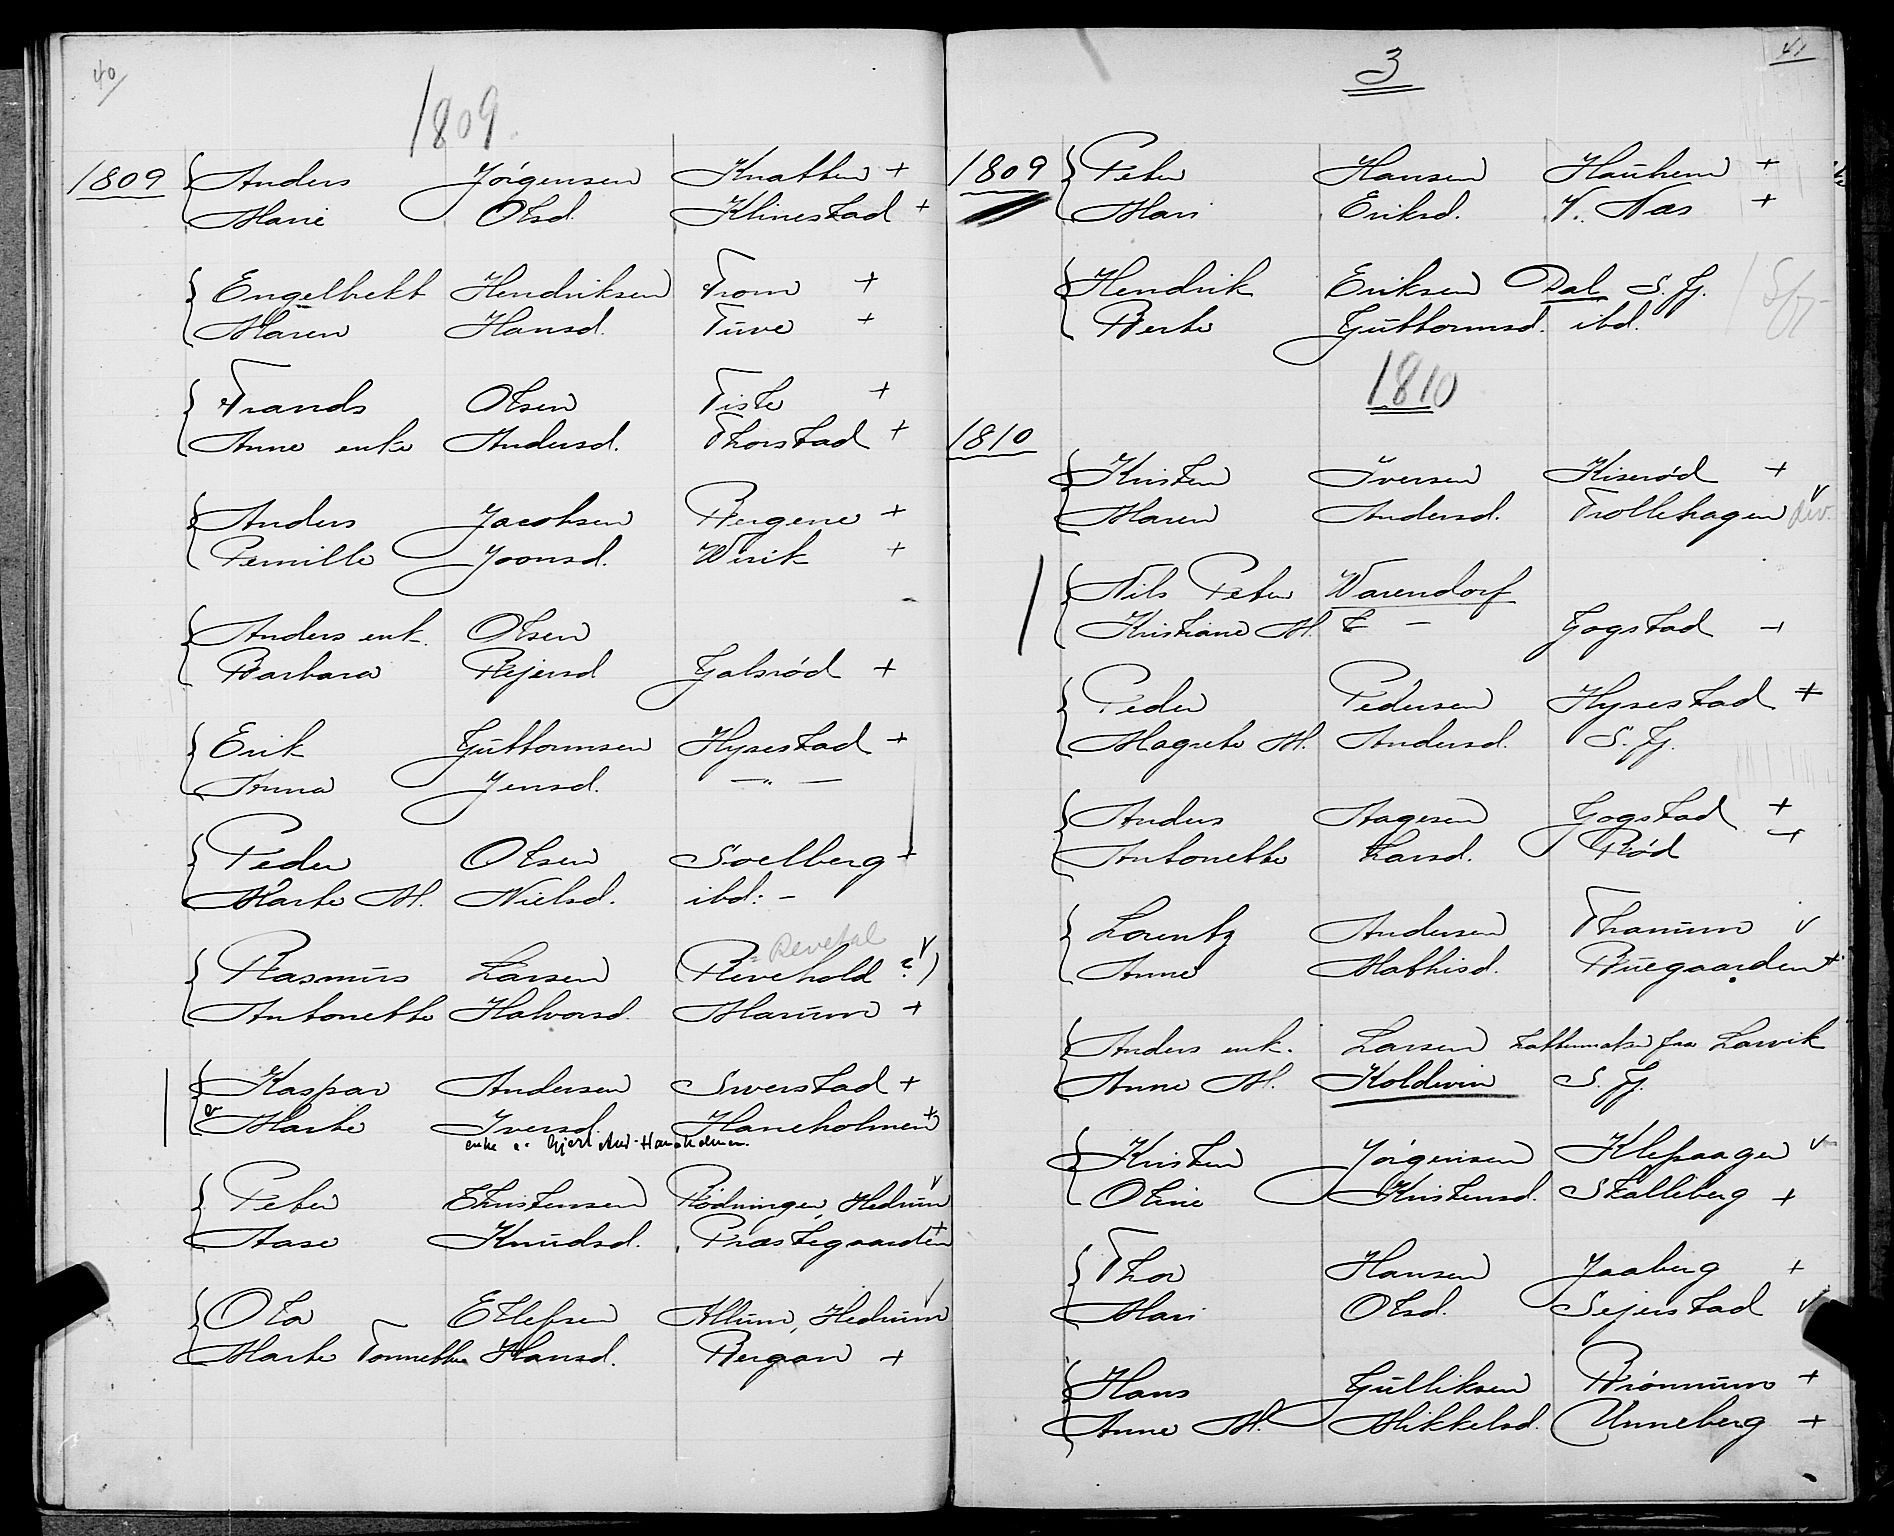 40
1809
1809 Anders Jörgensen Knatten +
Marie Olsd. Klinestad +
Engelbrekt Hendriksen Trom +
Maren Hansd. Tuve +
Trands Olsen Tiste +
Anne enke Andersd. Thorstad +
Anders Jacobsen Bergene +
Pernille Joonsd. Wirik +
Anders enk. Olsen
Barbara Rejersd Galsrød +
Erik Guttormsen Hysestad +
Anna Jensd. — " —
Peder Olsen Soelberg +
Marte M. Nielsd. ibd: -
= Revetal
Rasmus Larsen (Revehold ?) v
Antonette Halvorsd. Marum +
Kaspar Andersen Swerstad +
Marte Iversd. Haneholmen +
enke e. Gjert And. Haneholmen.
Peter Christensen Rödningen, Hedrum v
Aase Knudsd. Præstegaarden +
Ola Ellefsen Allum, Hedrum v
Marte Tonnette Hansd. Bergan +
41
3
1809 Peter Hansen Haukem +
Mari Eriksd. V. Næs +
Hendrik Eriksen Dal S. Fj.
Berte Guttormsd. ibd.
1810
1810
Kristen Iversen Kiserød +
Maren Andersd. Trollehagen v
Nils Peter Warendorf
Kristiane M. E — Gogstad +
Peder Pedersen Hysestad +
Magrete M. Andersd. S. Fj.
Anders Aagesen Gogstad +
Antonette Larsd. Rød +
Lorentz Andersen Thanum v
Anne Mathisd. Ruegaarden +
Anders enk. Larsen fra Larvik
Anne M. Koldevin S. Fj.
Kristen Jörgensen Klepaager v
Oline Kristensd. Skalleberg +
Thor Hansen Jaaberg +
Mari Olsd. Sejerstad v
Hans Gulliksen Brønnum +
Anne M. Mikkelsd. Unneberg +